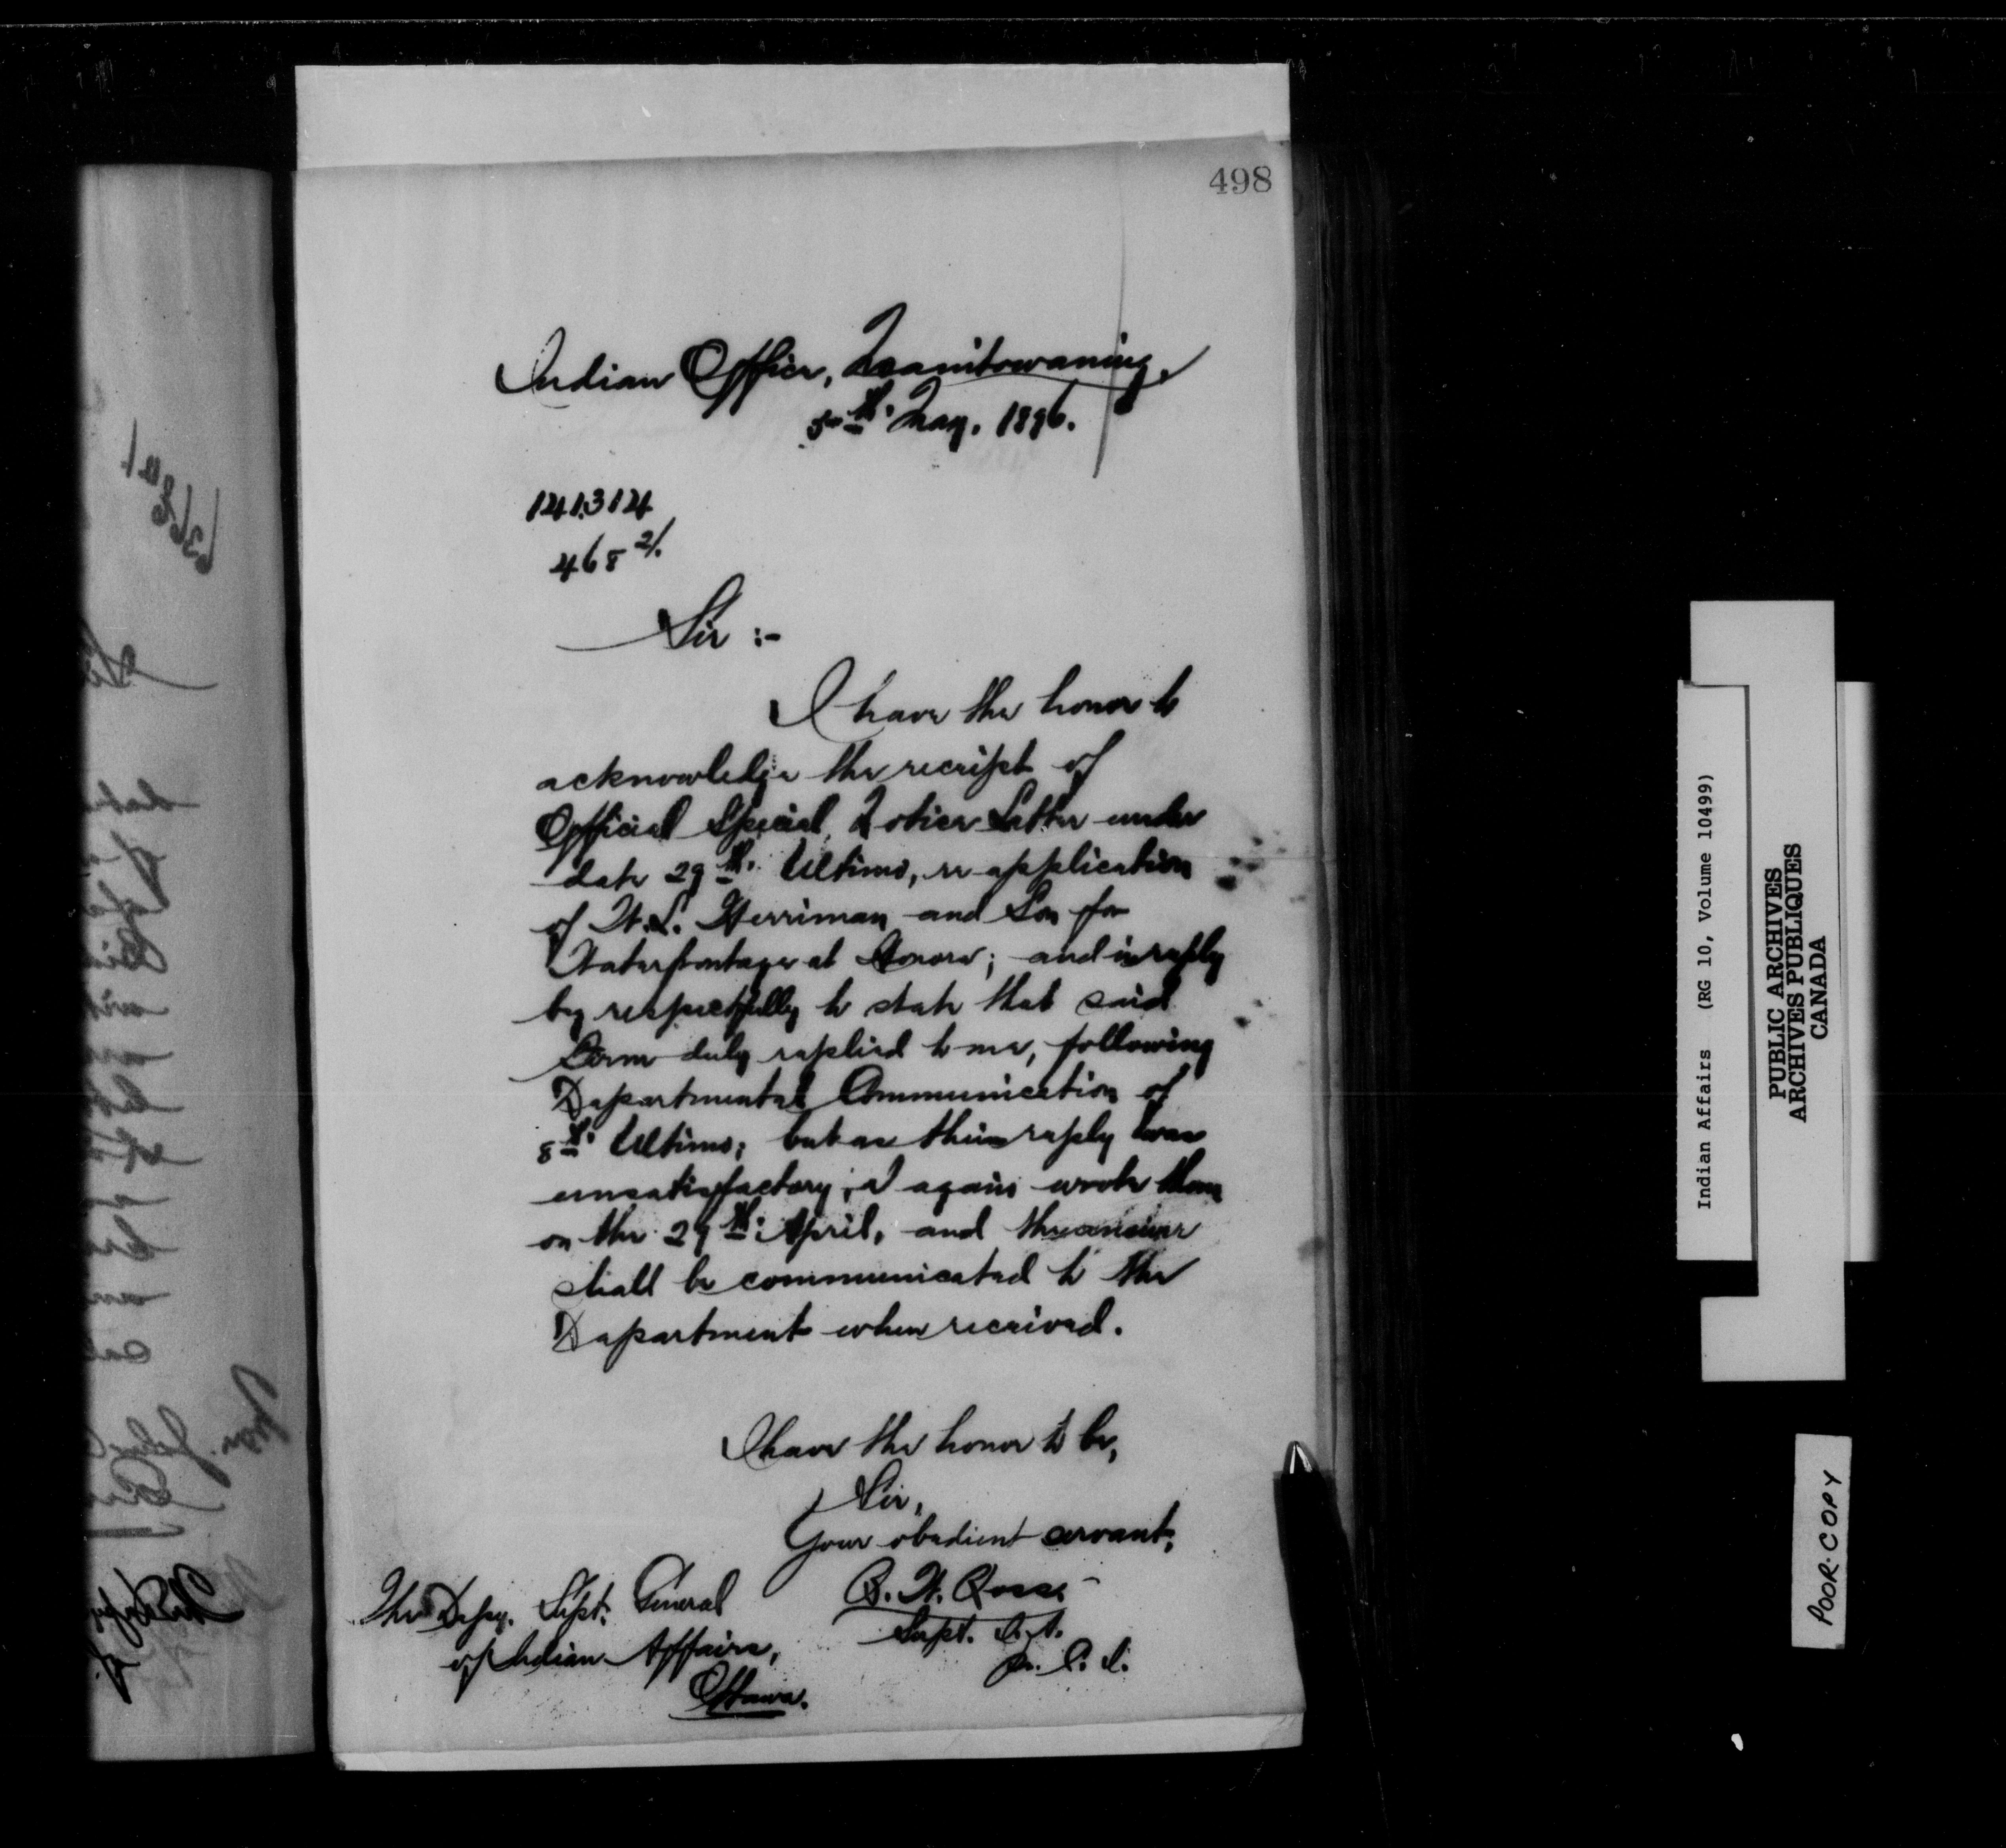 498
Indian Office, Manitowaning,
5th May, 1896.
141314
468 2/.
Sir :-
I have the honor to
acknowledge the receipt of
Official Special Notice Letter under
date 29th Ultimo, re application
of Herriman and Son for
Waterfrontage at ; and in reply
beg respectfully to state that said
Firm duly replied to me, following
Departmental Communication of
8th Ultimo; but as their reply was
unsatisfactory, I again wrote them
on the 29th April, and the answer
shall be communicated to the
Department when received.
I have the honor to be,
Sir,
Your obedient servant,
B. W. Ross.
Supt. I. A.
The Depy. Supt. General
of Indian Affairs,
Ottawa.
Indian Affairs (RG 10, Volume 10499)
PUBLIC ARCHIVES
ARCHIVES PUBLIQUES
CANADA
POOR COPY